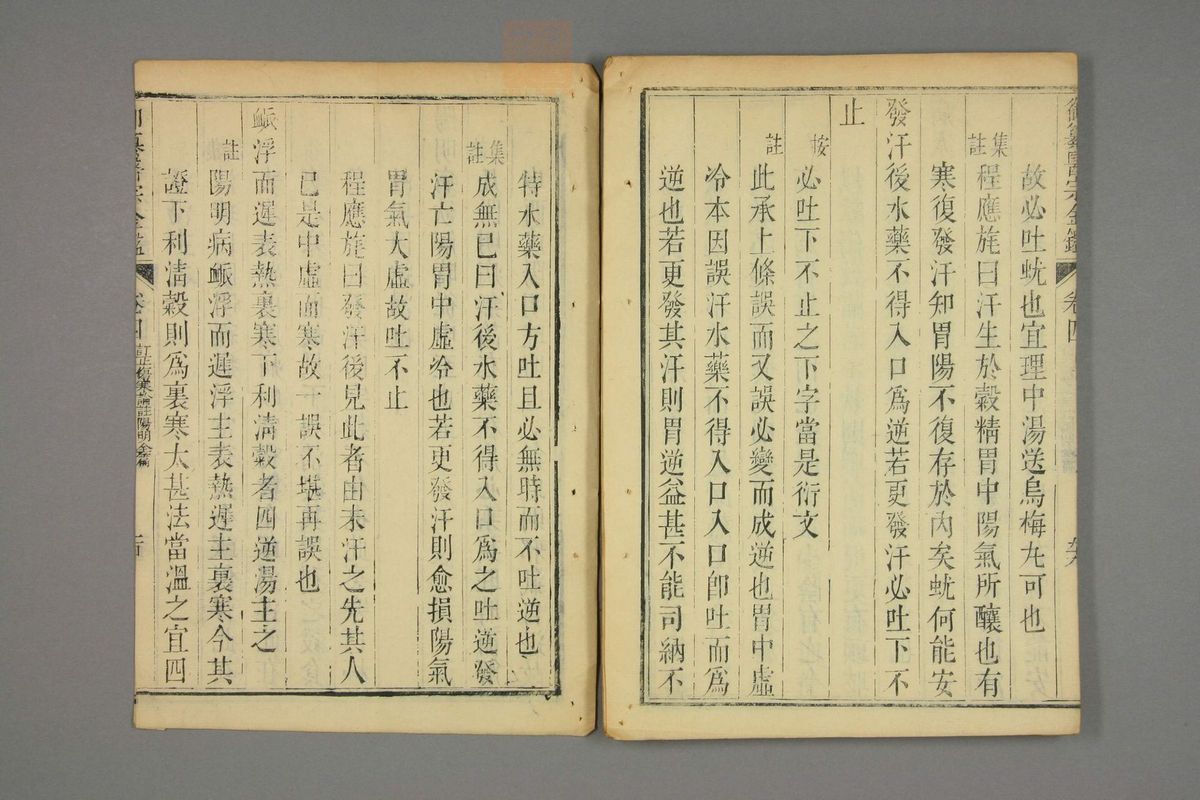 御纂醫宗金鑑 卷四
故必吐蚘也宜理中湯送烏梅丸可也
集註
程應旄曰汗生於穀精胃中陽氣所釀也有
寒復發汗知胃陽不復存於內矣蚘何能安
發汗後水藥不得入口爲逆若更發汗必吐下不
止
按
必吐下不止之下字當是衍文
註
此承上條誤而又誤必變而成逆也胃中虛
冷本因誤汗水藥不得入口入口卽吐而爲
逆也若更發其汗則胃逆益甚不能司納不
特水藥入口方吐且必無時而不吐逆也
集註
成無已曰汗後水藥不得入口爲之吐逆發
汗亡陽胃中虛冷也若更發汗則愈損陽氣
胃氣大虛故吐不止
程應旄曰發汗後見此者由未汗之先其人
已是中虛而寒故一誤不堪再誤也
脈浮而遲表熱裏寒下利淸穀者四逆湯主之
註
陽明病脈浮而遲浮主表熱遲主裏寒今其
證下利淸穀則爲裏寒太甚法當溫之宜四
醫宗金鑑 卷四 訂正傷寒論註陽明全篇